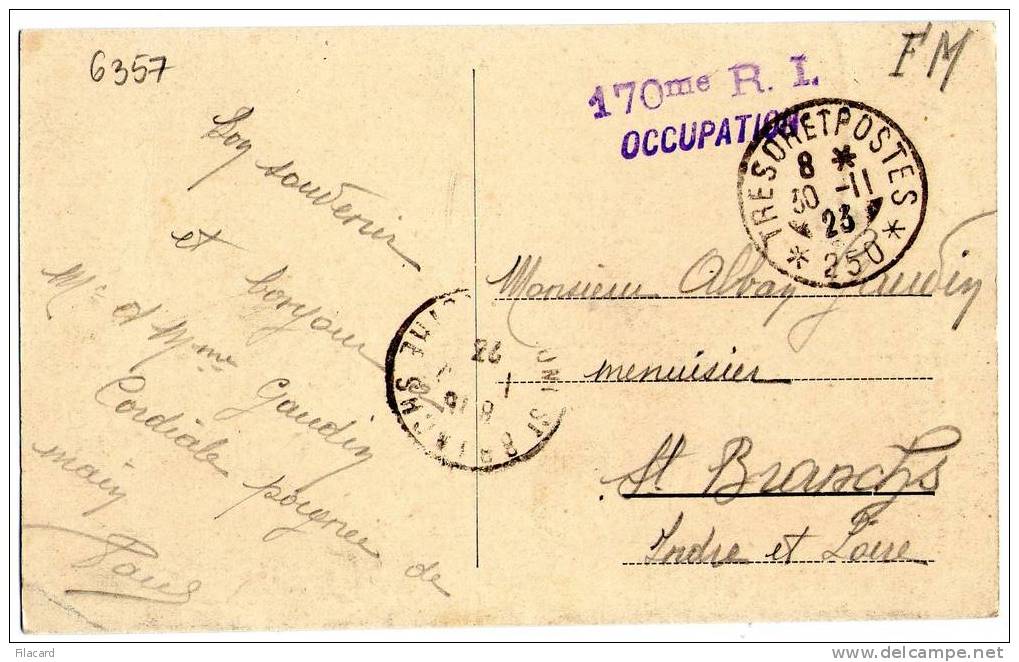 6357
FM
170me R. I.
OCCUPATION
TRESOR ET POSTES
8 *
30 -11
23
* 250 *
Bon souvenir
et bonjour
Mr et Mme Gaudin
Cordiale poignée de
main
Paul
Monsieur Alban Gaudin
menuisier
St Branchs
Indre et Loire
ST BRANCHS
23
Filacard
delcampe.net